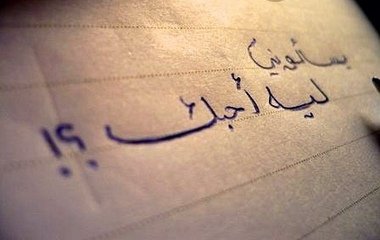 يسألوني
ليه أحبك
؟!